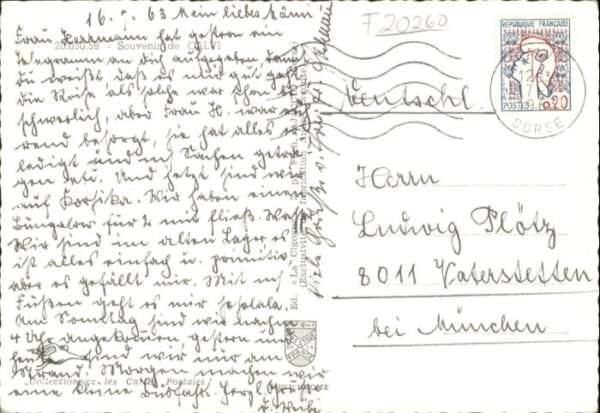 16. 7. 63 Mein liebes Männi!
Frau Herrmann hat gestern ein
Telegramm an Dich aufgegeben, damit
du weißt daß es mir gut geht
die Reise als solche war schon
schwerlich, aber Frau H. war
rend besorgt, sie hat alles er
ledigt und m Sachen getra
gen etc. Und jetzt sind wir
auf Korsika. Wir haben einen
Bungalow für 2 mit fließ. Wasser
Wir sind im alten Lager es
ist alles einfach u. primitiv
aber es gefällt mir. Mit m
Füßen geht es mir soslala.
Am Sonntag sind wir nachm
4 Uhr angekommen, gestern und
heute sind wir nur am
Strand. Morgen machen wir
eine kleine Herzl. Grüße
Viele Grüße
20.050.59 - Souvenir de CALVI
Edit. "La Cigogne"
"Collectionnez les Cartes Postales"
F 20260
REPUBLIQUE FRANÇAISE
POSTES
0,20
CORSE
Deutschl.
Herrn
Ludwig Plötz
8011 Vaterstetten
bei München